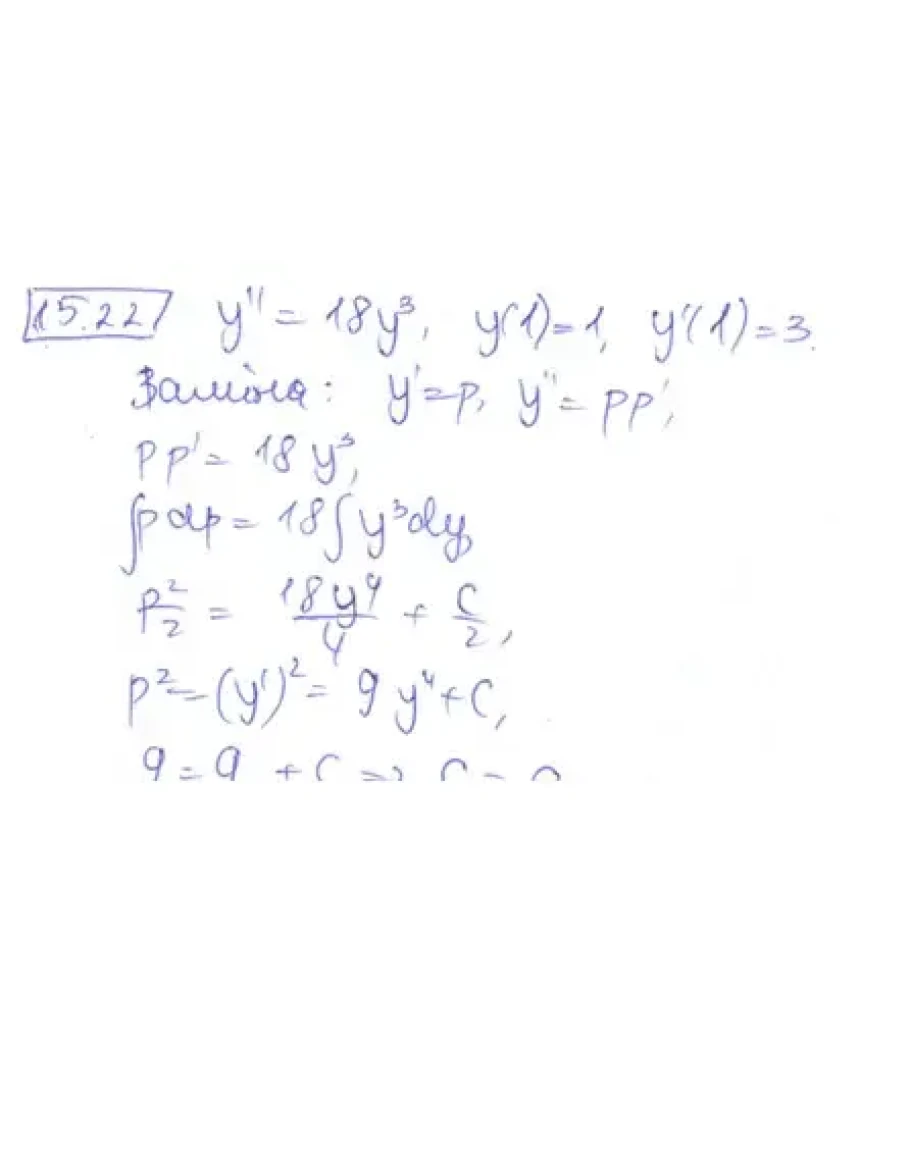 15.22 y'' = 18y³, y(1)=1, y'(1)=3.
Заміна: y'=p, y''=pp',
pp' = 18y³,
∫pdp = 18∫y³dy
p²/2 = 18y⁴/4 + C/2,
p² = (y')² = 9y⁴+C,
9 = 9 + C ⇒ C =